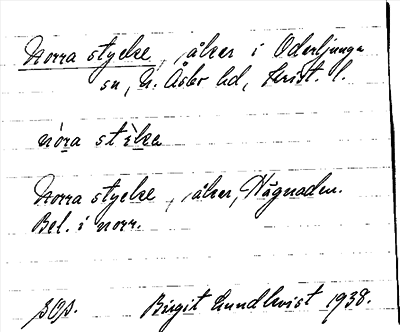 Norra stycke, åker i Oderljunga
sn, N. Åsbo hd, Krist. l.
nora stika
Norra stycke, åker, Vägnaden.
Bel. i norr.
Birgit Lundkvist 1938.